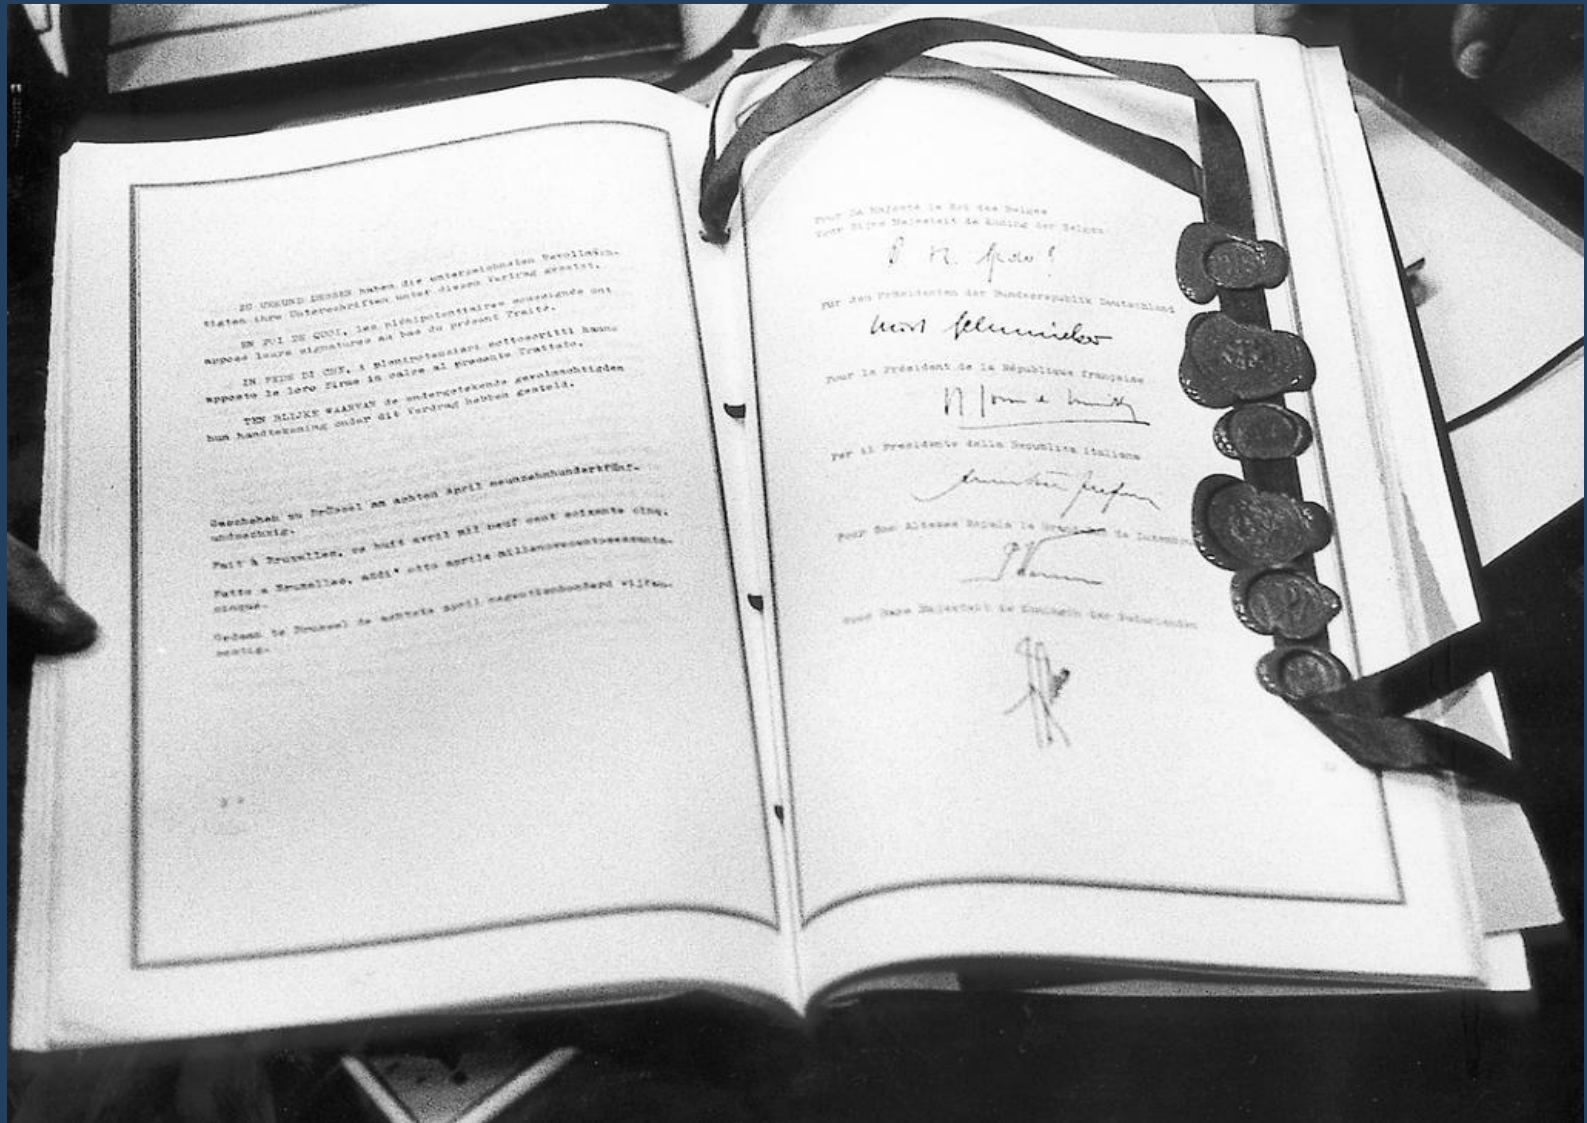 ZU URKUND DESSEN haben die unterzeichneten Bevollmäch-
tigten ihre Unterschriften unter diesen Vertrag gesetzt.
EN FOI DE QUOI, les plénipotentiaires soussignés ont
apposé leurs signatures au bas du présent Traité.
IN FEDE DI CHE, i plenipotenziari sottoscritti hanno
apposto le loro firme in calce al presente Trattato.
TEN BLIJKE WAARVAN de ondergetekende gevolmachtigden
hun handtekening onder dit Verdrag hebben gesteld.
Geschehen zu Brüssel am achten April neunzehnhundertfünf-
undsechzig.
Fait à Bruxelles, ce huit avril mil neuf cent soixante cinq.
Fatto a Bruxelles, addi' otto aprile millenovecentosessanta-
cinque.
Gedaan te Brussel de achtste april negentienhonderd vijfen-
zestig.
Pour Sa Majesté le Roi des Belges
Voor Zijne Majesteit de Koning der Belgen
Für den Präsidenten der Bundesrepublik Deutschland
Pour le Président de la République française
Per il Presidente della Repubblica italiana
Pour Son Altesse Royale le Grand-Duc de Luxembourg
Voor Hare Majesteit de Koningin der Nederlanden